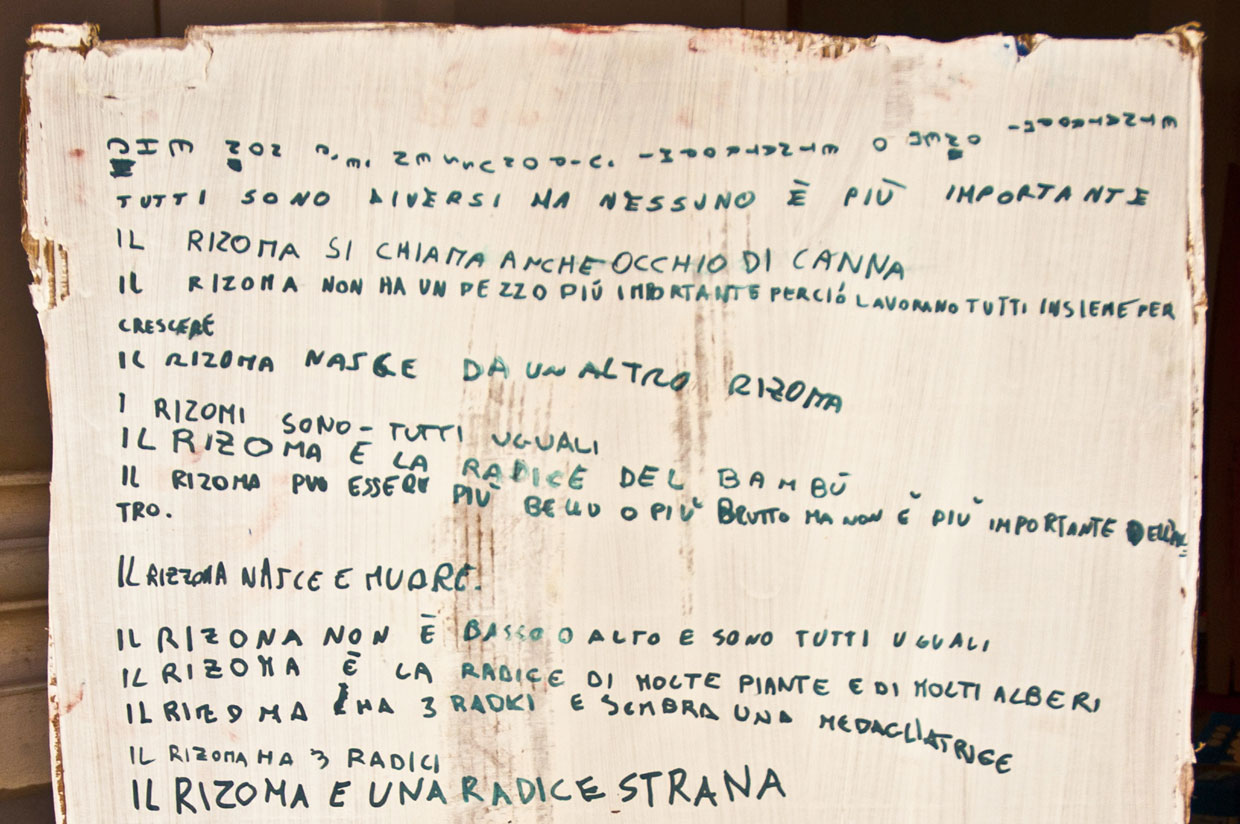 TUTTI SONO DIVERSI MA NESSUNO È PIÙ IMPORTANTE
IL RIZOMA SI CHIAMA ANCHE OCCHIO DI CANNA
IL RIZOMA NON HA UN PEZZO PIÚ IMPORTANTE PERCIÓ LAVORANO TUTTI INSIEME PER
CRESCERE
IL RIZOMA NASCE DA UN ALTRO RIZOMA
I RIZOMI SONO - TUTTI UGUALI
IL RIZOMA E LA RADICE DEL BAMBÙ
IL RIZOMA PUO ESSERE PIÙ BELLO O PIÙ BRUTTO MA NON È PIÙ IMPORTANTE DELL'AL=
TRO.
IL RIZZOMA NASCE E MUORE.
IL RIZONA NON È BASSO O ALTO E SONO TUTTI UGUALI
IL RIZOMA È LA RADICE DI MOLTE PIANTE E DI MOLTI ALBERI
IL RIZOMA HA 3 RADICI E SEMBRA UNA MEDAGLIATRICE
IL RIZOMA HA 3 RADICI
IL RIZOMA E UNA RADICE STRANA